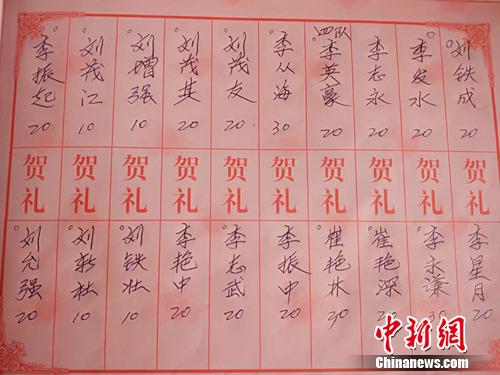 刘铁成 20
李发水 20
李志永 20
四队
李英豪 20
李从海 30
刘茂友 20
刘茂其 20
刘增强 10
刘茂江 10
李振起 20
贺礼 贺礼 贺礼 贺礼 贺礼 贺礼 贺礼 贺礼 贺礼 贺礼
李星月 20
李永谦 30
崔艳深
崔艳林
李振中 20
李志武 20
李艳中 20
刘铁壮 10
刘新壮 10
刘允强 20
中新网
Chinanews.com